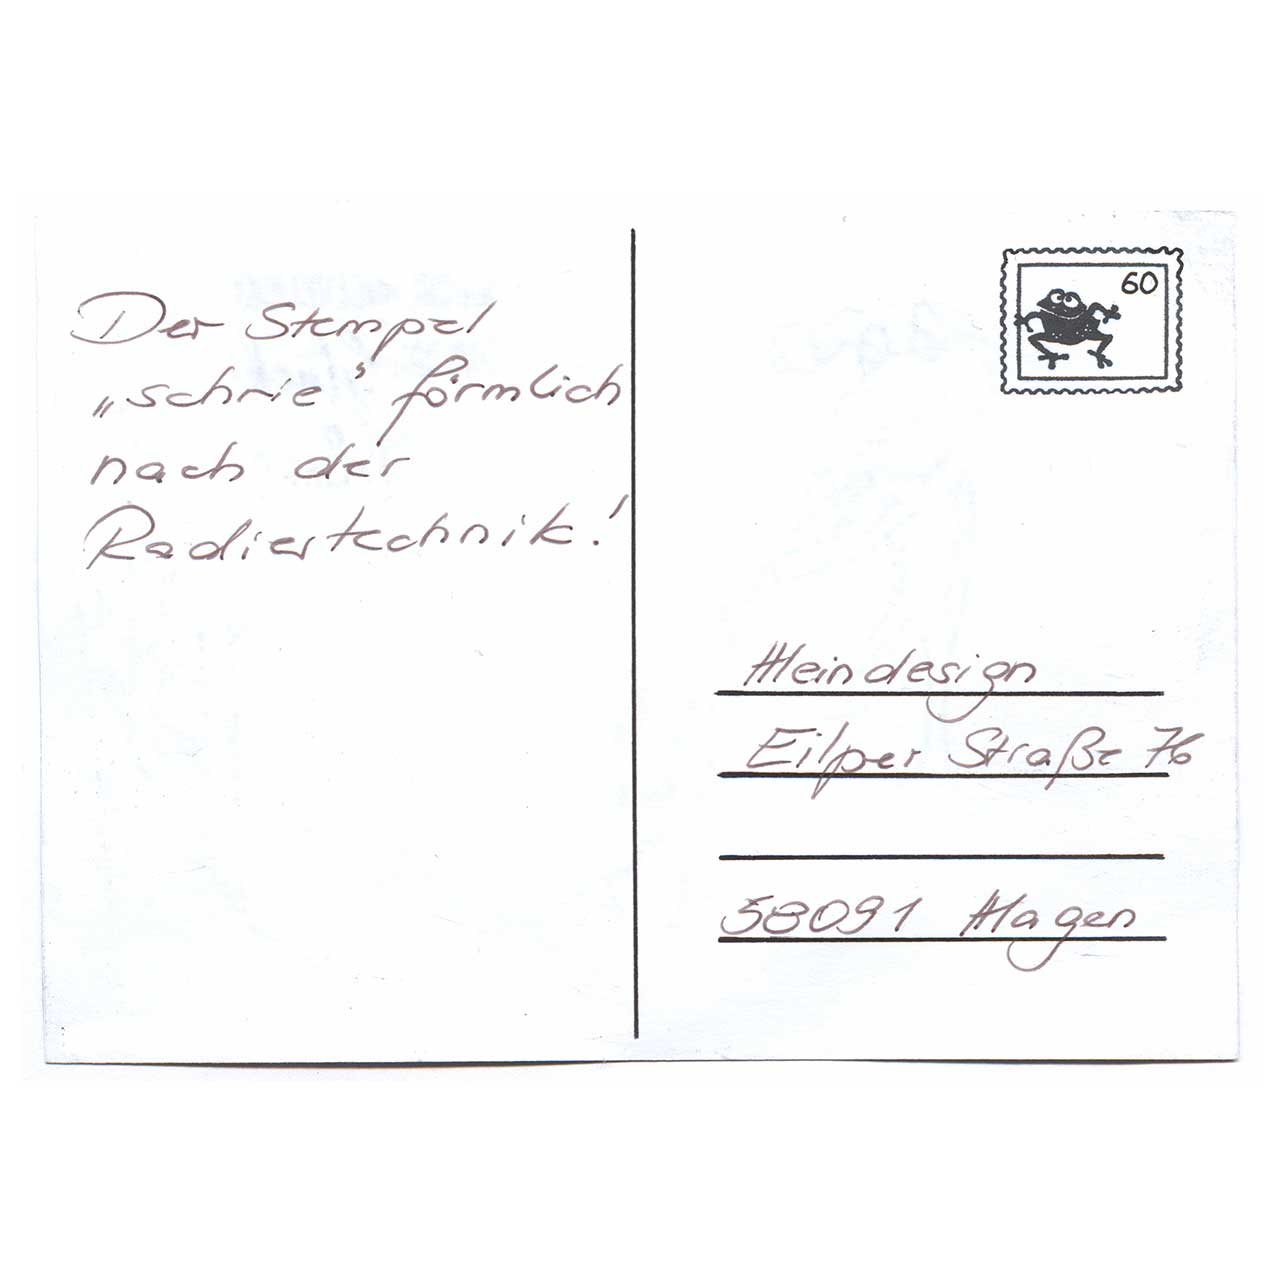 Der Stempel
„schrie“ förmlich
nach der
Radiertechnik!
60
Heindesign
Eilper Straße 76
58091 Hagen